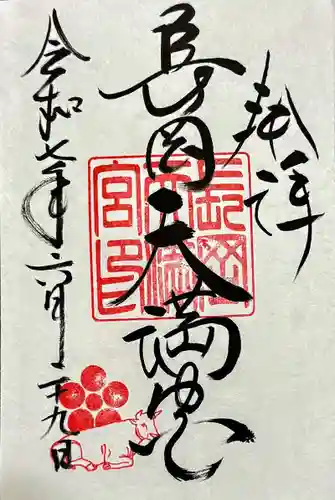 奉拝
長岡天満宮
長岡天満宮印
令和七年六月二十九日